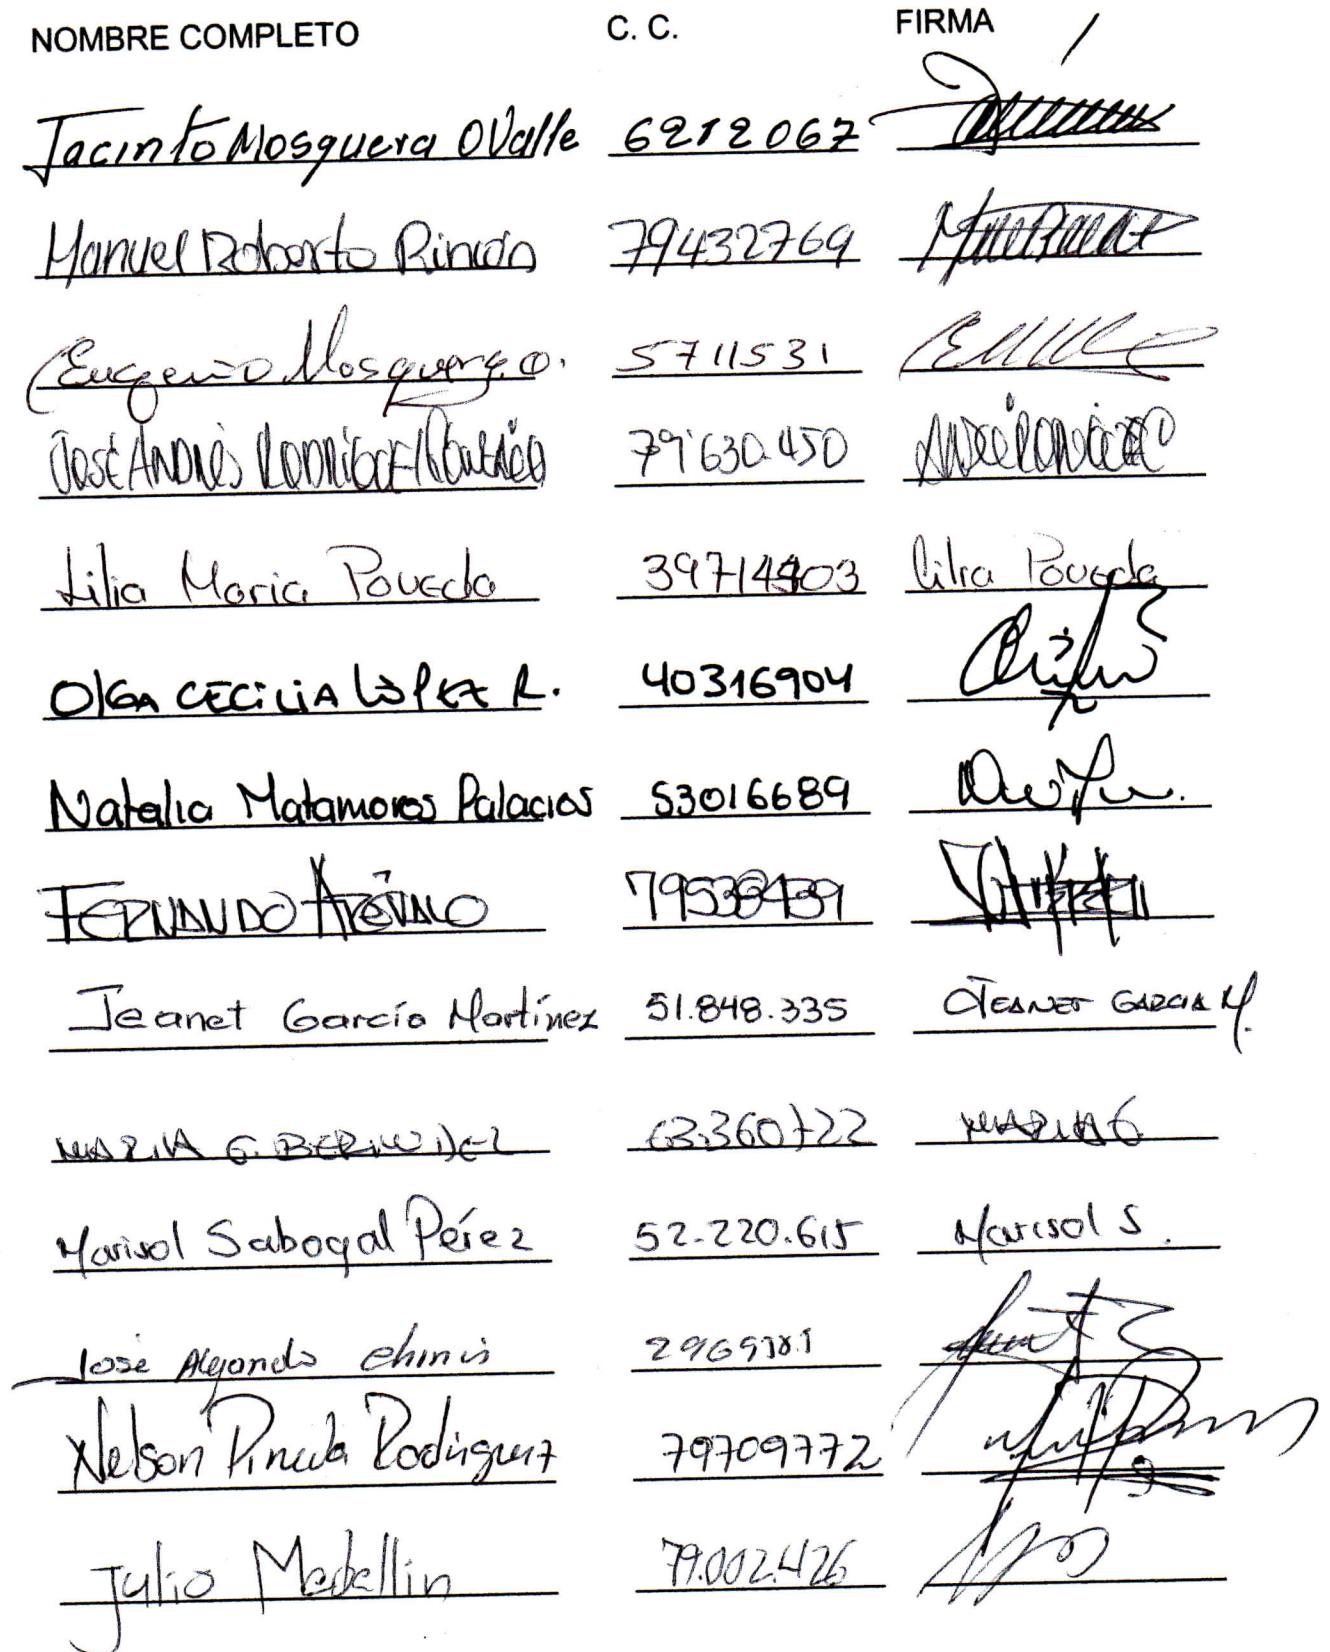 NOMBRE COMPLETO C. C. FIRMA
Jacinto Mosquera Ovalle 6212067
Manuel Roberto Rincón 79432769
Eugenio Mosquera O. 5711531
JOSÉ ANDRÉS 79'630.450
Lilia Maria Poveda 39714403 Lilia Poveda
OLGA CECILIA LÓPEZ R. 40316904
Natalia Matamoros Palacios 53016689
FERNANDO ARÉVALO 79538439
Jeanet García Martínez 51.848.335 JEANET GARCIA M.
MARIA G. BERMUDEZ 63.360722 MARIA G
Marisol Sabogal Pérez 52.220.615 Marisol S.
José
Nelson Pineda Rodriguez 79709772
Julio Medellin 79.002.426